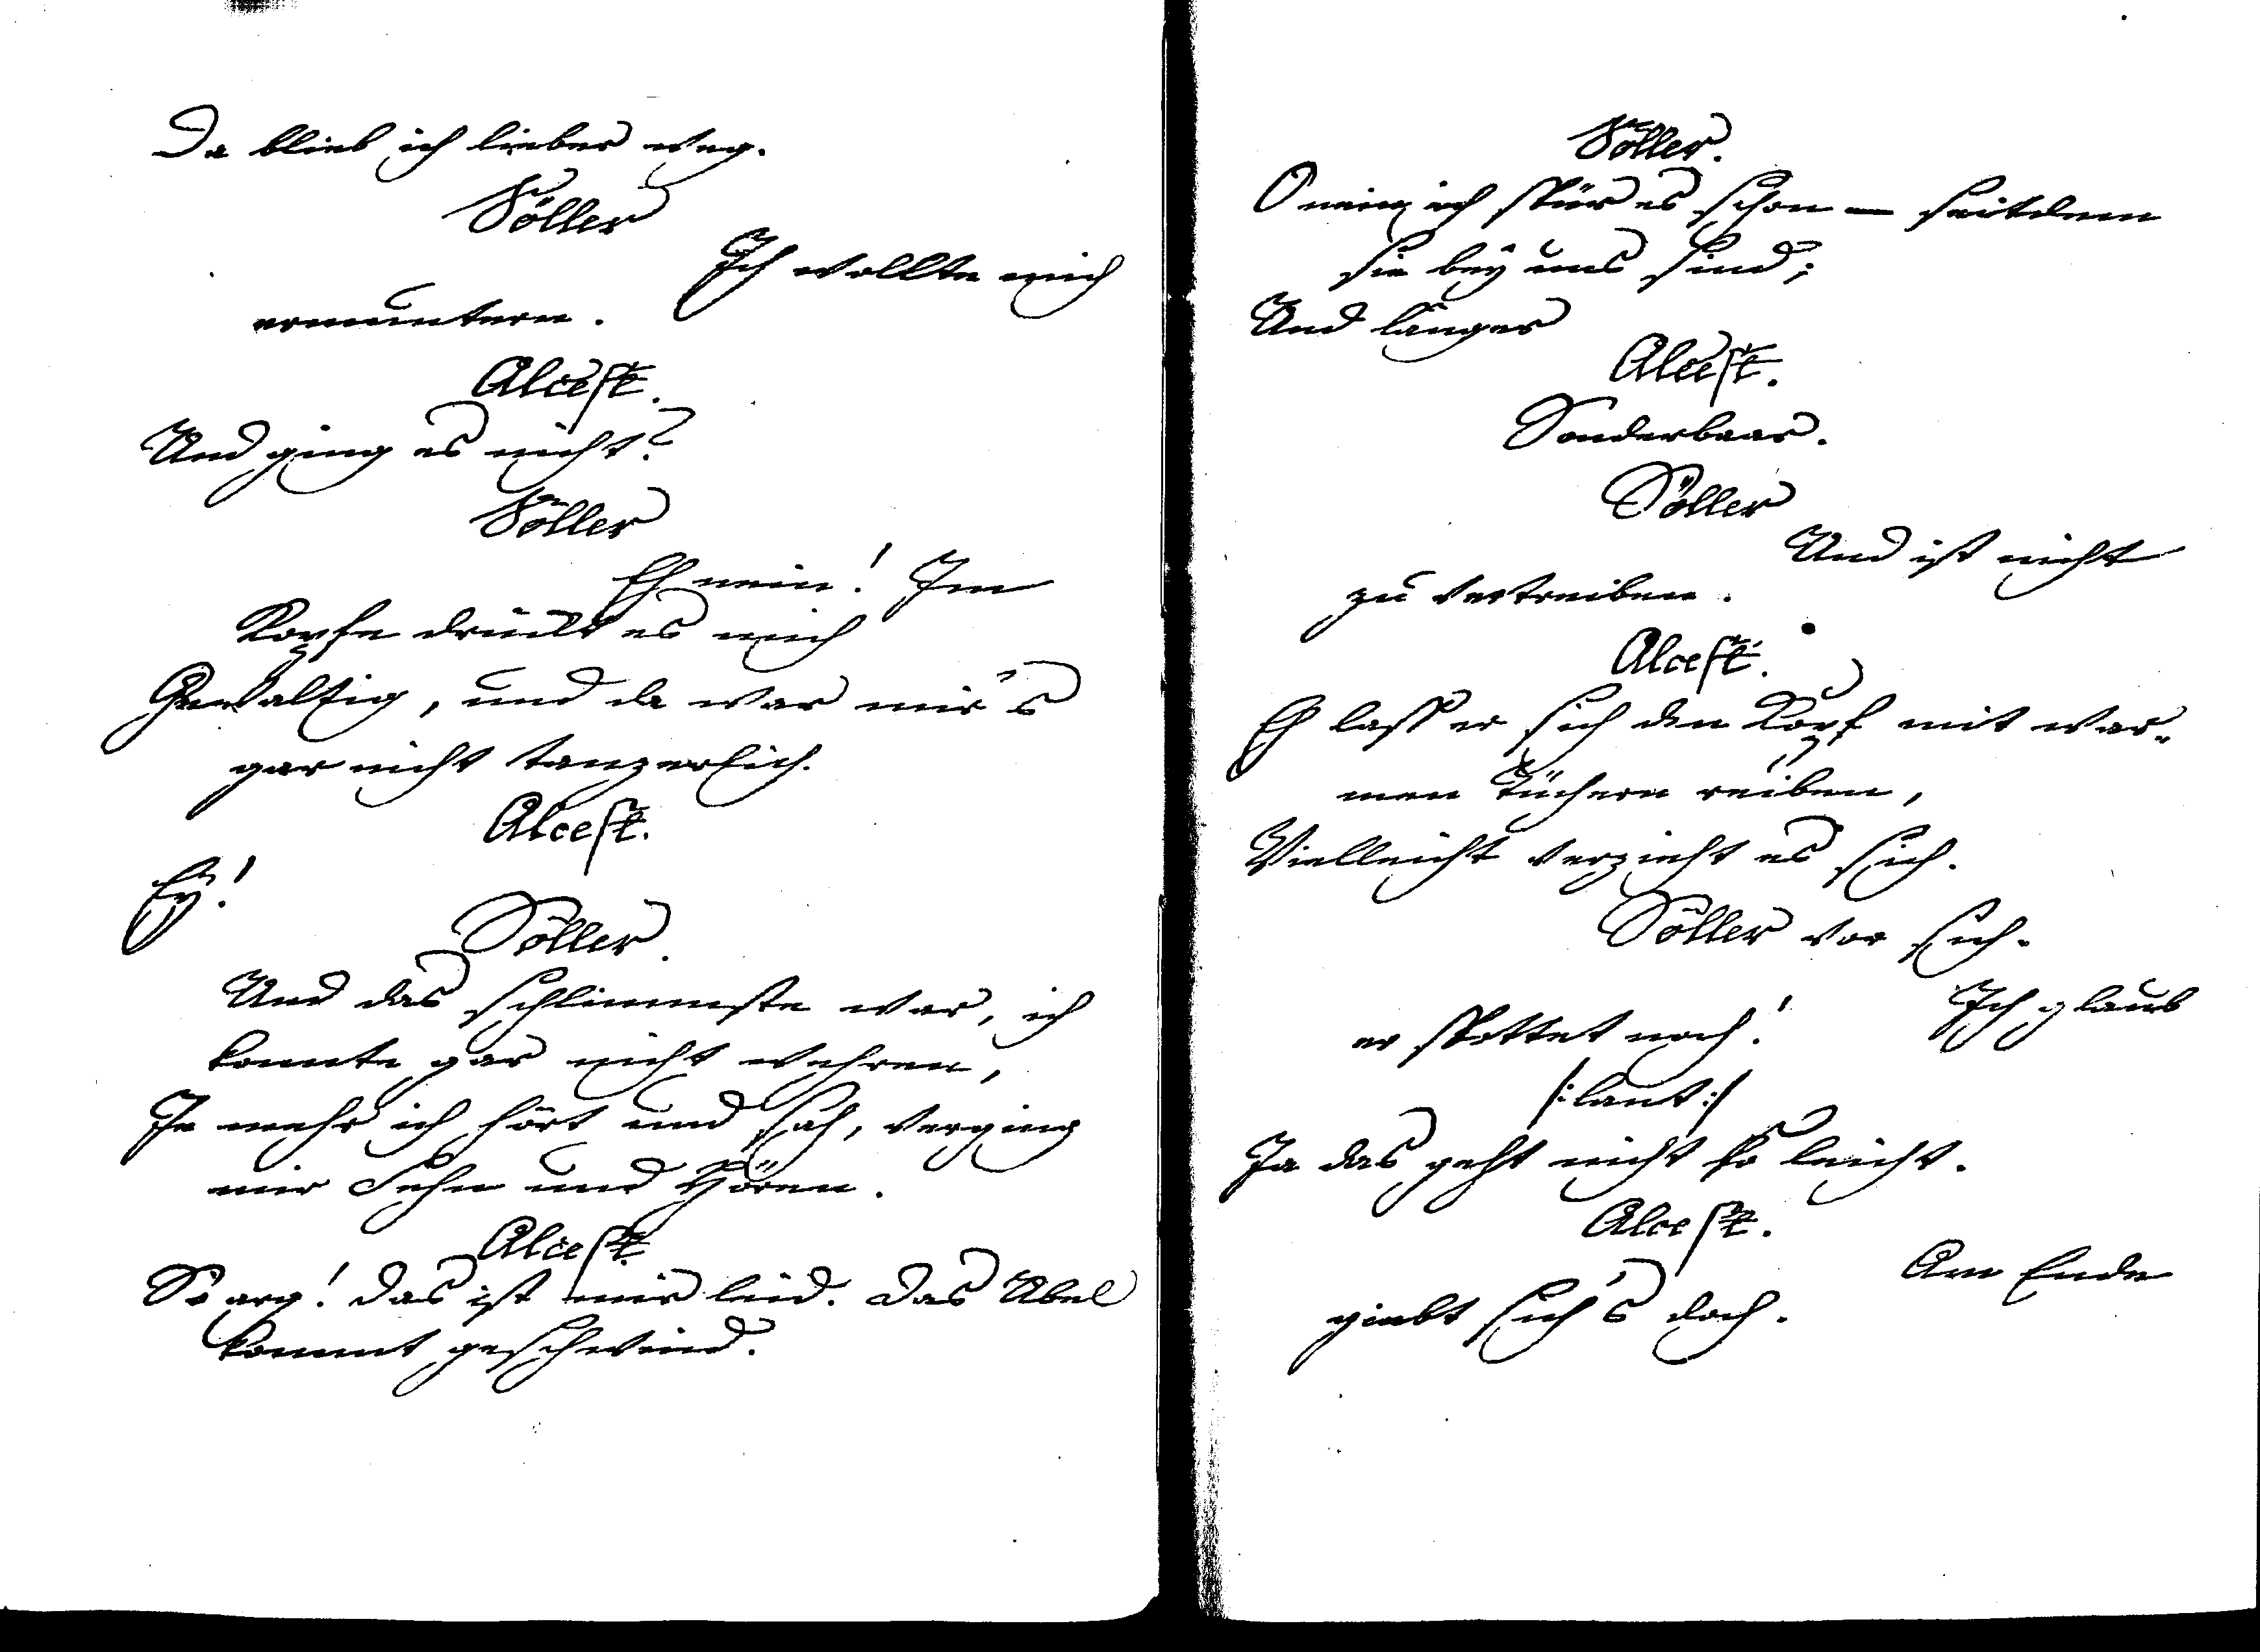 Da blieb ich lieber weg.
Söller
Ich wollte mich
ermuntern.
Alcest.
Und ging es nicht?
Söller
Eh nein! Im
Kopfe drückt es mich
Gewaltig, und da war mir's
gar nicht tanzerlich.
Alcest.
Ey!
Söller.
Und das schlimmste war, ich
konnte gar nicht wehren,
Je mehr ich hört und sah, verging
mir Sehn und Hören.
Alcest
So arg! das ist mir leid. Das Übel
kommt geschwind.
Söller.
O nein ich spür es schon — seitdem
sie bey uns sind;
Und länger
Alcest.
Sonderbaar.
Söller
Und ist nicht
zu vertreiben.
Alcest.
Eh lass er sich den Kopf mit war-
men Tüchern reiben,
Vielleicht verzieht es sich.
Söller vor sich.
Ich glaub
er spottet noch!
/: laut :/
Ja das geht nicht so leicht.
Alcest.
Am Ende
giebt sich's doch.